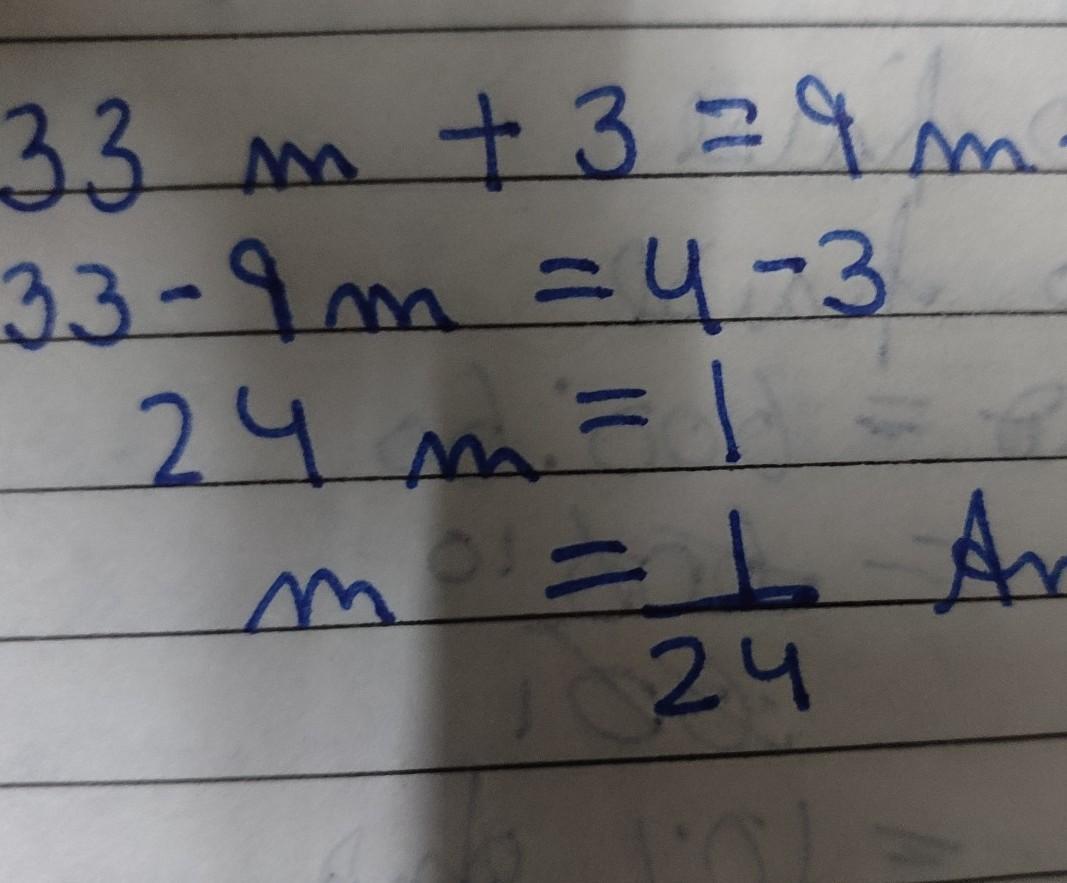 33 m + 3 = 9 m
33 - 9 m = 4 - 3
24 m = 1
m = 1/24